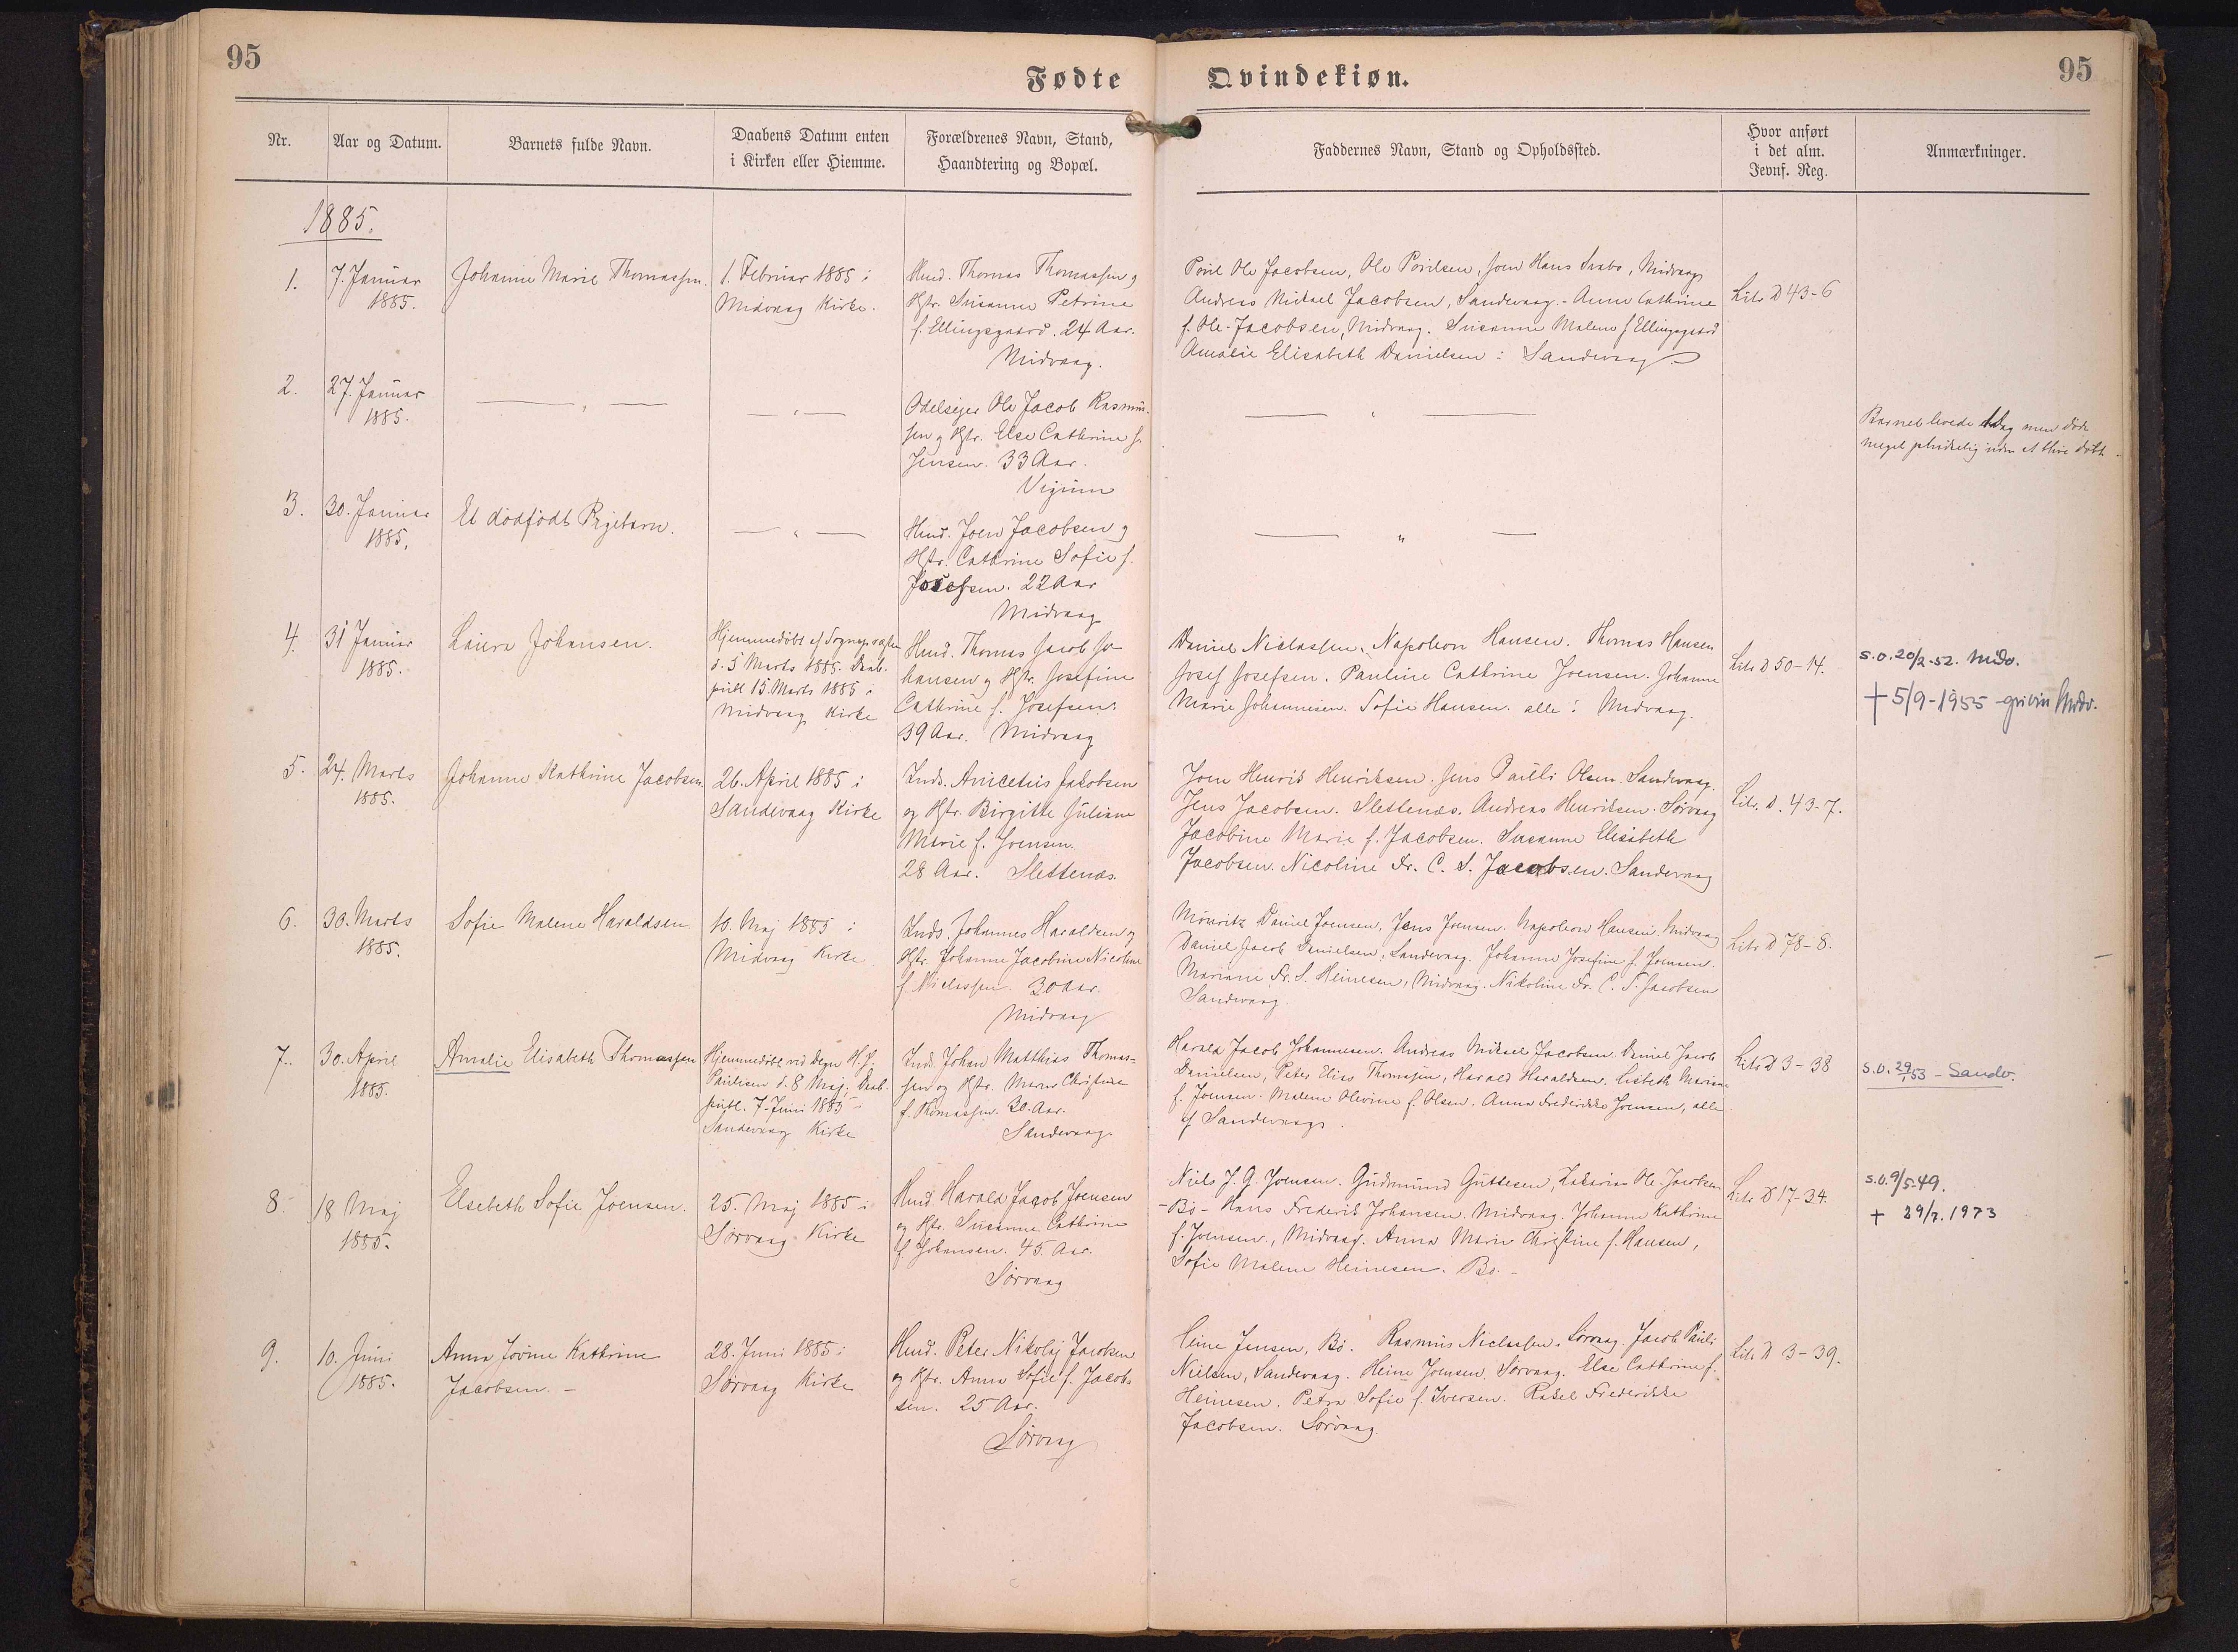 95
Fødte
Qvindekiøn.
95
Nr.
Aar og Datum.
Barnets fulde Navn.
Daabens Datum enten
i Kirken eller Hiemme.
Forældrenes Navn, Stand,
Haandtering og Bopæl.
Faddernes Navn, Stand og Opholdssted.
Hvor anført
i det alm.
Jevnf. Reg.
Anmærkninger.
1885.
1.
7. Januar
1885.
Johanne Marie Thomassen.
1. Februar 1885 i
Midvaag Kirke.
Hmd. Thomas Thomassen og
Hstr. Susanne Petrine
f. Ellingsgaard. 24 Aar.
Midvaag.
Poul Ole Jacobsen, Ole Poulsen, Joen Hans Svabo, Midvaag
Andreas Mikael Jacobsen, Sandevaag. - Anne Cathrine
f. Ole-Jacobsen, Midvaag. Susanne Malene f Ellingsgaard
Amalie Elisabeth Danielsen : Sandevaag
Litr D 43-6
2.
27. Januar
1885.
Odelsejer Ole Jacob Rasmus-
sen og Hstr. Else Cathrine f.
Jensen. 33 Aar.
Barnet levede 1 Dag men døde
meget pludselig uden at blive døbt.
3.
30. Januar
1885.
Et dødfødt Pigebarn.
Hmd. Joen Jacobsen og
Hstr. Cathrine Sofie f.
Josefsen. 22 Aar
Midvaag
4.
31 Januar
1885.
Laura Johansen.
Hjemmedøbt af Sognepræsten
d. 5 Marts 1885. Daab.
publ 15 Marts 1885 i
Midvaag Kirke
Hmd. Thomas Jacob Jo-
hansen og Hstr. Josefine
Cathrine f. Josefsen.
39 Aar. Midvaag
Daniel Niclassen. Napoleon Hansen. Thomas Hansen
Josef Josefsen. Pauline Cathrine Joensen. Johanne
Marie Johannesen. Sofie Hansen. alle : Midvaag.
Litr D 50-14.
s.o. 20/2-52. Midv.
† 5/9-1955 - Midv.
5.
24. Marts
1885.
Johanne Kathrine Jacobsen.
26. April 1885 i
Sandevaag Kirke
Inds. Anicetus Jakobsen
og Hstr. Birgitte Juliane
Marie f. Joensen.
28 Aar. Slettenæs.
Joen Henrik Henriksen. Jens Pauli Olsen. Sandevaag.
Jens Jacobsen. Slettenæs. Andreas Henriksen. Sørvaag
Jacobine Marie f. Jacobsen. Susanne Elisabeth
Jacobsen. Nicoline Fr. C. S. Jacobsen. Sandevaag
Litr. D. 43-7.
6.
30. Marts
1885.
Sofie Malene Haraldsen
10. Maj 1885 i
Midvaag Kirke
Inds. Johannes Haraldsen og
Hstr. Johanne Jacobine Nicoline
f. Niclassen. 30 Aar.
Midvaag
Mouritz Daniel Joensen, Jens Joensen. Napoleon Hansen. Midvaag
Daniel Jacob Danielsen, Sandevaag. Johanne Josefine f. Joensen.
Mariane Fr. S. Heinesen, Midvaag. Nikoline Fr. C. S. Jacobsen
Sandevaag.
Litr D 78-8.
7.
30. April
1885.
Amalie Elisabeth Thomassen
Hjemmedøbt ved Degn H. J.
Poulsen d. 8 Maj. Daab.
publ. 7. Juni 1885 -
Sandevaag Kirke
Inds. Johan Matthias Thomas-
sen og Hstr. Maren Christine
f. Thomassen. 30. Aar.
Sandevaag.
Harald Jacob Johannesen. Andreas Mikael Jacobsen. Daniel Jacob
Danielsen, Peter Elias Thomassen, Harald Haraldsen. Lisbeth Mariane
f. Joensen. Malene Olevine f. Olsen. Anna Frederikke Joensen, alle
af Sandevaag.
Litr D 3-38
s.o. 29/1 53 - Sandv.
8.
18 Maj
1885.
Elsebeth Sofie Joensen.
25. Maj 1885 i
Sørvaag Kirke
Hmd. Harald Jacob Joensen
og Hstr. Susanne Cathrine
f. Johansen. 45 Aar.
Sørvaag
Niels J. G. Joensen. Gudmund Guttesen, Zakarias Ole-Jacobsen
- Bø - Hans Frederik Johansen. Midvaag. Johanne Kathrine
f. Joensen, Midvaag. Anna Marie Christine f. Hansen,
Sofie Malene Heinesen. Bø.-
Litr D 17-34.
s.o. 9/5-49.
† 29/7. 1973
9.
10. Juni
1885.
Anna Jovine Kathrine
Jacobsen. -
28. Juni 1885 i
Sørvaag Kirke
Hmd. Peter Nikolaj Jacobsen
og Hstr. Anna Sofie f. Jacob-
sen. 25 Aar.
Sørvaag
Heine Jensen, Bø. Rasmus Niclassen, Sørvaag. Jacob Pauli
Nielsen, Sandevaag. Heine Joensen, Sørvaag. Else Cathrine f.
Heinesen. Petra Sofie f. Iversen. Rakel Frederikke
Jacobsen. Sørvaag.
Litr D 3-39.